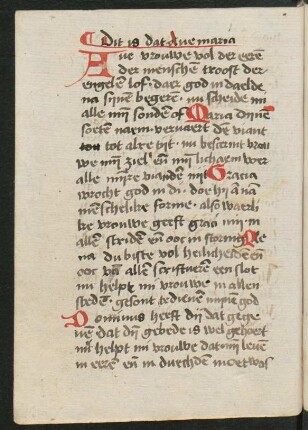 Dit is dat Ave maria
Aue vrouwe vol der eren
der menschen troost der
engelen lof daer god in daelde
na sijnre begere nu scheide mi
alle mijn sonden of Maria dinen
soeten naem veruaert de viant
tot alre tijt nu beschermt vrou
we mijn ziel en mijn lichaem voer
alle mijnre vianden mit Gracia
wrocht god in di doe hi an nam
menschelike forme also waerli
ke vrouwe geeft graci mi in
allen striden en ooc in storm Ple
na du biste vol heilicheiden en
ooc van allen scrifturen een slot
nu helpt mi vrouwe in allen
steden gesont te dienen minen god
Dominus heeft di dat gege
uen dat dijn gebede is wel gehoert
nu helpt mi vrouwe dat mijn leuen
in eren en in duechden